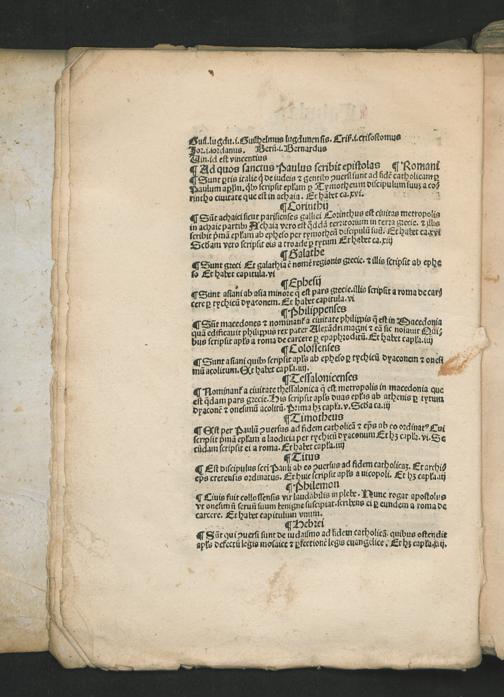 Guil. lugdu. i. Guilhelmus lugdunensis. Crisͦ. i. crisostomus
Jor. i. iordanus. Bern. i. Bernardus
Uin. id est vincentius
¶ Ad quos sanctus Paulus scribit epistolas ¶ Romani
¶ Sunt ptis italie q̄ de iudeis ⁊ gentibꝰ ꝯuersi sunt ad fidē catholicam ꝑ
Paulum aplm̄. qbꝰ scripsit eplam ꝑ Tymotheum discipulum suum a co⸗
rintho ciuitate que est in achaia. Et habet ca. xvi.
¶ Corinthij
¶ Sūt achaici sicut parisienses gallici Corinthus est ciuitas metropolis
in achaie partibꝰ Achaia vero est q̄dā territorium in terra grecie. ⁊ illis
scribit pͥmā eplam ab epheso per tymotheū discipulū suū. Et habet ca. xvi
Scd̄am vero scripsit eis a troade ꝑ tytum Et habet ca. xiij
¶ Galathe
¶ Sunt greci Et galathia ē nomē regionis grecie. ⁊ illis scripsit ab ephe
so Et habet capitula. vi
¶ Ephesij
¶ Sunt asiani ab asia minore q̄ est pars grecie. illis scripsit a roma de car⸗
cere ꝑ tychicū dyaconem. Et habet capitula. vi
¶ Philippenses
¶ Sūt macedones ⁊ nominanͬ a ciuitate philippis q̄ est in Macedonia
quā edificauit philippus rex pater Alexādri magni ⁊ eā sic noīauit Qui⸗
bus scripsit apls a roma de carcere ꝑ epaphroditū. Et habet capl̄a. iiij
¶ Colossenses
¶ Sunt asiani quibꝰ scripsit apls ab epheso ꝑ tychicū dyaconem ⁊ onesi
mū acolitum. Et habet capl̄a. iiij.
¶ Tessalonicenses
¶ Nominanͬ a ciuitate thessalonica q̄ est metropolis in macedonia que
est q̄dam pars grecie. His scripsit apls duas eplas ab athenis ꝑ tytum
dyaconē ⁊ onesimū acolitū. Prima hꝫ capl̄a. v. Scd̄a ca. iij
¶ Timotheus
¶ Est per Paulū ꝯuersus ad fidem catholicā ⁊ ep̄s ab eo ordinatꝰ Cui
scripsit pͥmā eplam a laodicia per tychicū dyaconum Et hꝫ capl̄a. vi. Se
cūdam scripsit ei a roma. Et habet capl̄a. iiij
¶ Titus
¶ Est discipulus sct̄i Pauli ab eo ꝯuersus ad fidem catholicaꝫ. Et archi⸗
ep̄s cretensis ordinatus. Et huic scripsit apls a nicopoli. Et hꝫ capl̄a. iij
¶ Philemon
¶ Ciuis fuit collossensis vir laudabilis in plebe. Nunc rogat apostolus
vt onesimū seruū suum benigne suscipiat. scribens ei ꝑ eundem a roma de
carcere. Et habet capitulum vnum.
¶ Hebrei
¶ Sūt qui ꝯuersi sunt de iudaismo ad fidem catholicā. quibus ostendit
apls defectū legis mosaice ⁊ ꝑfectionē legis euangelice. Et hꝫ capl̄a. xiij.